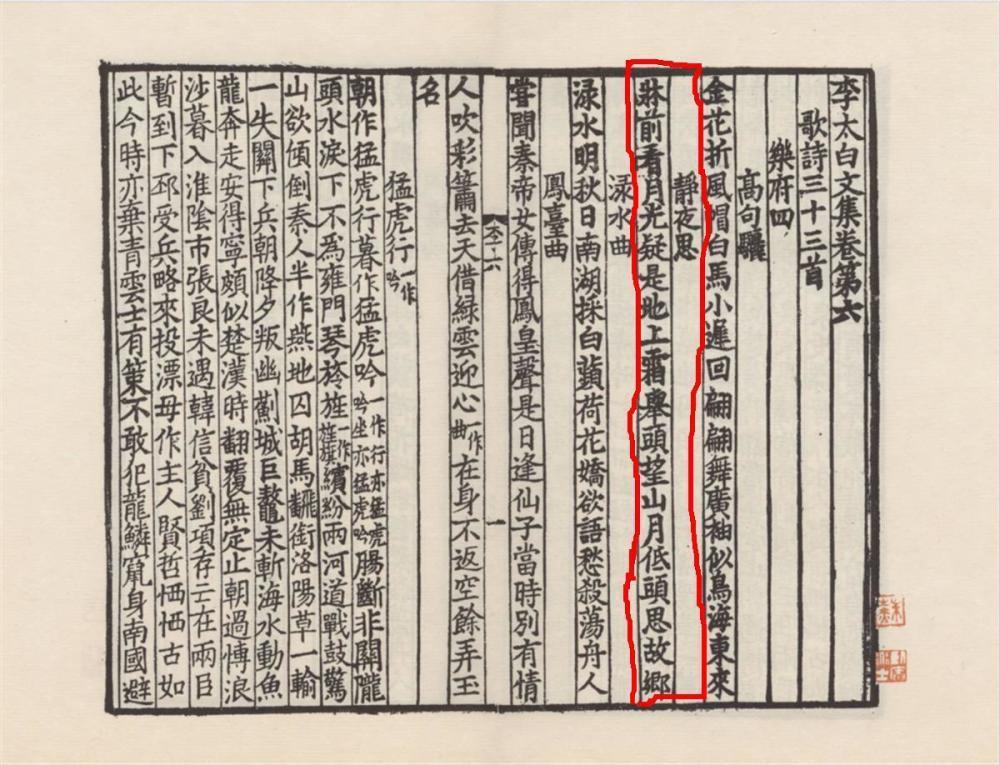 李太白文集卷第六
歌詩三十三首
樂府四
高句驪
金花折風帽白馬小遲回翩翩舞廣袖似鳥海東來
靜夜思
牀前看月光疑是地上霜舉頭望山月低頭思故鄉
淥水曲
淥水明秋日南湖採白蘋荷花嬌欲語愁殺蕩舟人
鳳臺曲
嘗聞秦帝女傳得鳳皇聲是日逢仙子當時別有情
人吹彩簫去天借綠雲迎心一作曲在身不返空餘弄玉
名
猛虎行一作吟
朝作猛虎行暮作猛虎吟一作行亦猛虎吟坐亦猛虎吟腸斷非關隴
頭水淚下不為雍門琴旍旌一作旌旗繽紛兩河道戰鼓驚
山欲傾倒秦人半作燕地囚胡馬翻銜洛陽草一輸
一失關下兵朝降夕叛幽薊城巨鼇未斬海水動魚
龍奔走安得寧頗似楚漢時翻覆無定止朝過博浪
沙暮入淮陰市張良未遇韓信貧劉項存亡在兩臣
暫到下邳受兵略來投漂母作主人賢哲恓恓古如
此今時亦棄青雲士有策不敢犯龍鱗竄身南國避